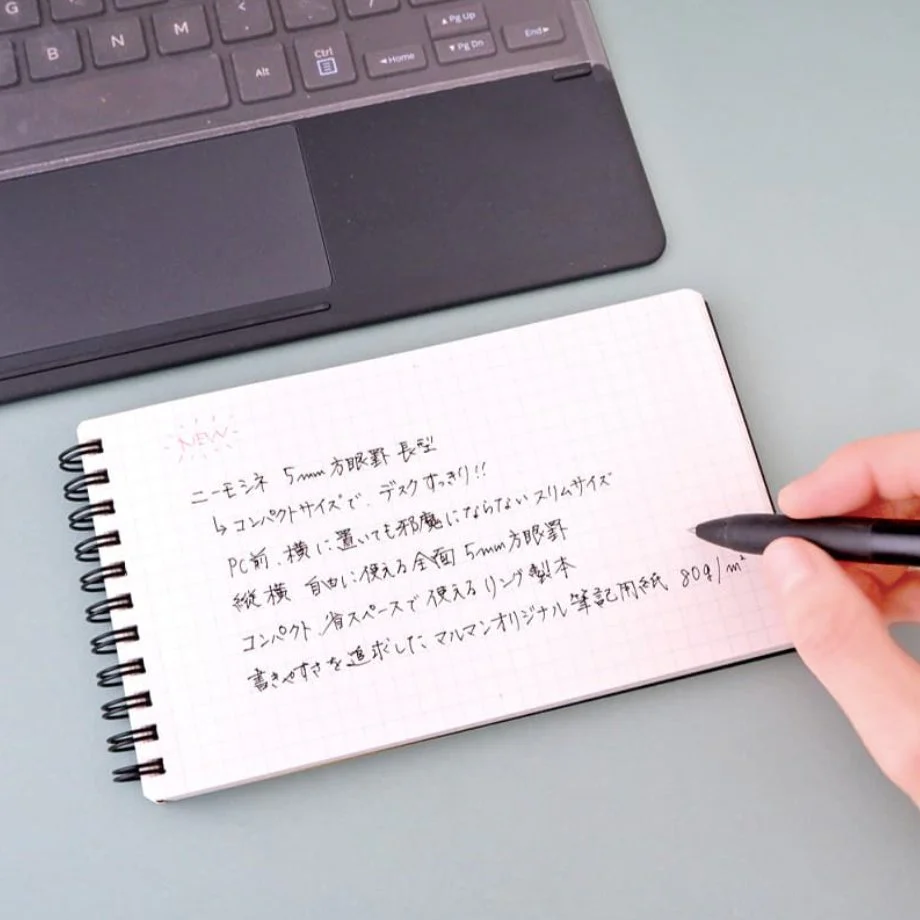 G
B
N
M
<
>
/
Alt
Ctrl
◄Home
▲Pg Up
▼Pg Dn
End►
NEW
ニーモシネ 5mm方眼罫 長型
↳コンパクトサイズで、デスクすっきり!!
PC前、横に置いても邪魔にならないスリムサイズ
縦横 自由に使える全面5mm方眼罫
コンパクト、省スペースで使えるリング製本
書きやすさを追求した、マルマンオリジナル筆記用紙 80g/m²